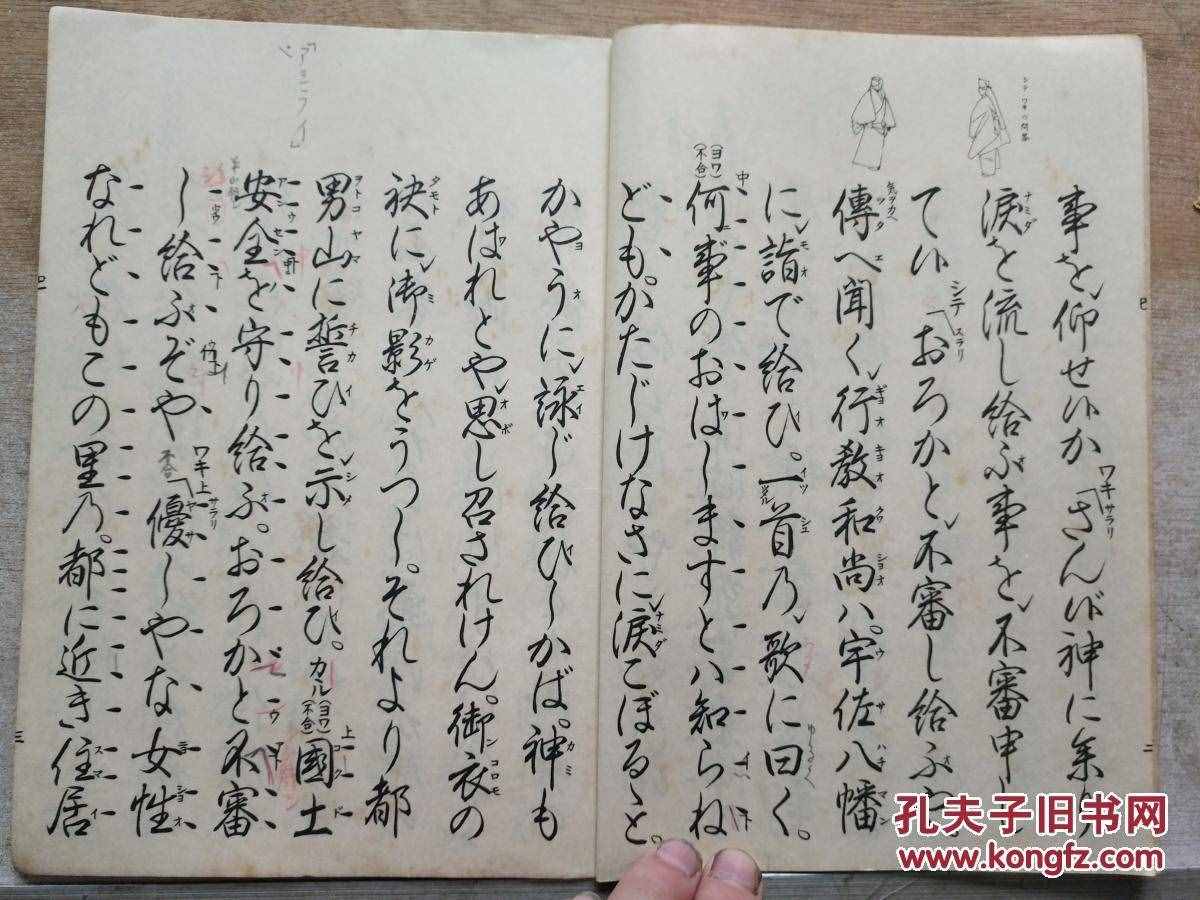 事を仰せ候か ワキ サラリ「さん候神に参り
涙を流し給ふ事を不審申し
て候 シテ スラリ「おろかと不審し給ふや。
傳へ聞く行教和尚ハ。宇佐八幡
に詣で給ひ。一首の歌に曰く。
何事のおはしますとハ知らね
ども。かたじけなさに涙こぼるゝと。
かやうに詠じ給ひしかば。神も
あはれとや思し召されけん。御衣の
袂に御影をうつし。それより都
男山に誓ひを示し給ひ。カル(ヨワ)(不合)國土
安全を守り給ふ。おろかと不審
し給ふぞや ワキ上 サラリ「優しやな女性
なれどもこの里の。都に近き住居
孔夫子旧书网
www.kongfz.com